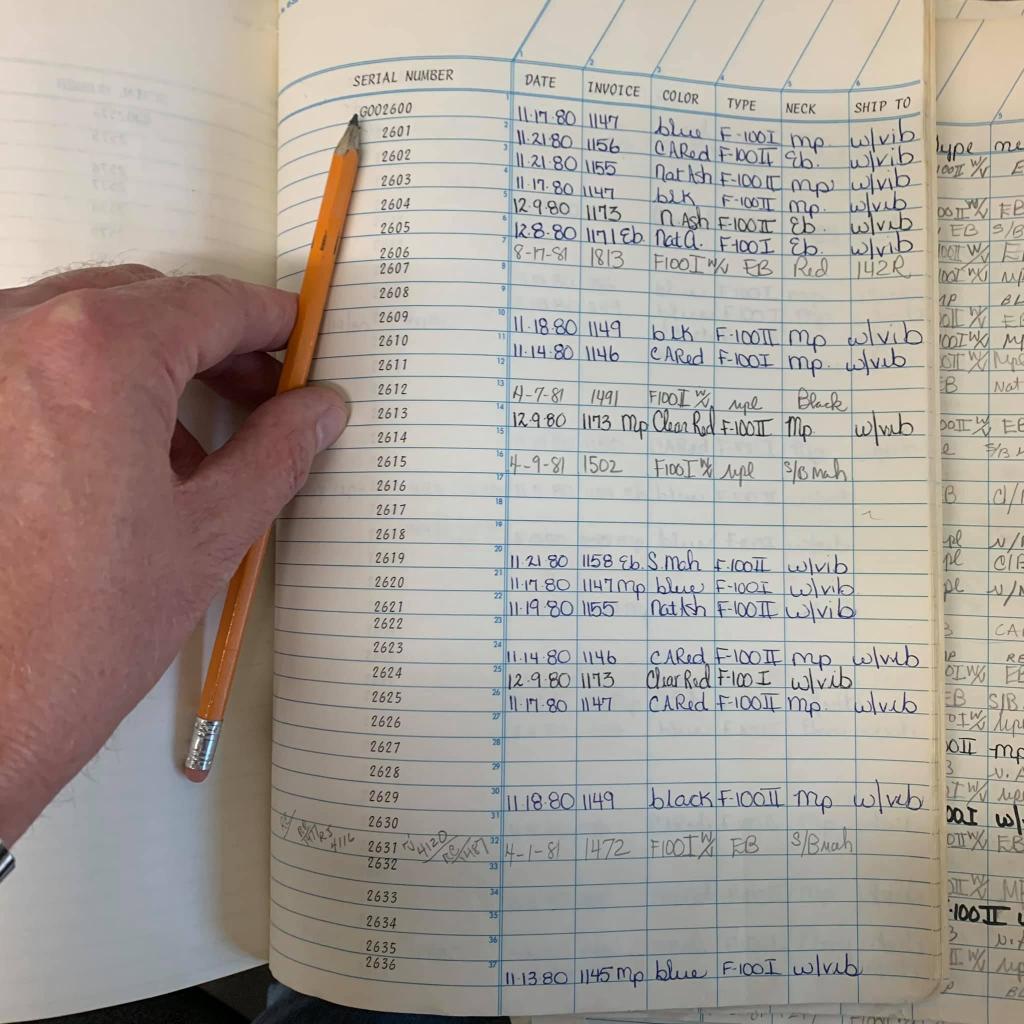 SERIAL NUMBER DATE INVOICE COLOR TYPE NECK SHIP TO
G002600 11.17.80 1147 blue F-100I mp. w/vib
2601 11.21.80 1156 CARed F-100II Eb. w/vib
2602 11.21.80 1155 nat Ash F-100II mp. w/vib
2603 11.17.80 1147 blk F-100II mp. w/vib
2604 12.9.80 1173 n.Ash F-100II Eb. w/vib
2605 12.8.80 1171 Eb. nat a. F-100I Eb. w/vib
2606 8-17-81 1813 F100I W/V EB Red 142R
2607
2608
2609 11.18.80 1149 blk F-100II mp w/vib
2610 11.14.80 1146 CARed F-100I mp. w/vib
2611
2612 4-7-81 1491 F100I W/V mpl Black
2613 12.9.80 1173 mp Clear Red F-100II mp. w/vib
2614
2615 4-9-81 1502 F100I W/V mpl S/B mah
2616
2617
2618
2619 11.21.80 1158 Eb. S.mah F-100II w/vib
2620 11.17.80 1147 mp blue F-100I w/vib
2621 11.19.80 1155 nat Ash F-100II w/vib
2622
2623 11.14.80 1146 CARed F-100II mp w/vib
2624 12.9.80 1173 Clear Red F-100I w/vib
2625 11.17.80 1147 CARed F-100II mp. w/vib
2626
2627
2628
2629 11.18.80 1149 black F-100II mp w/vib
2630
4116 2631 4120 4-1-81 1472 F100I W/V EB S/B mah
2632
2633
2634
2635
2636 11.13.80 1145 mp blue F-100I w/vib